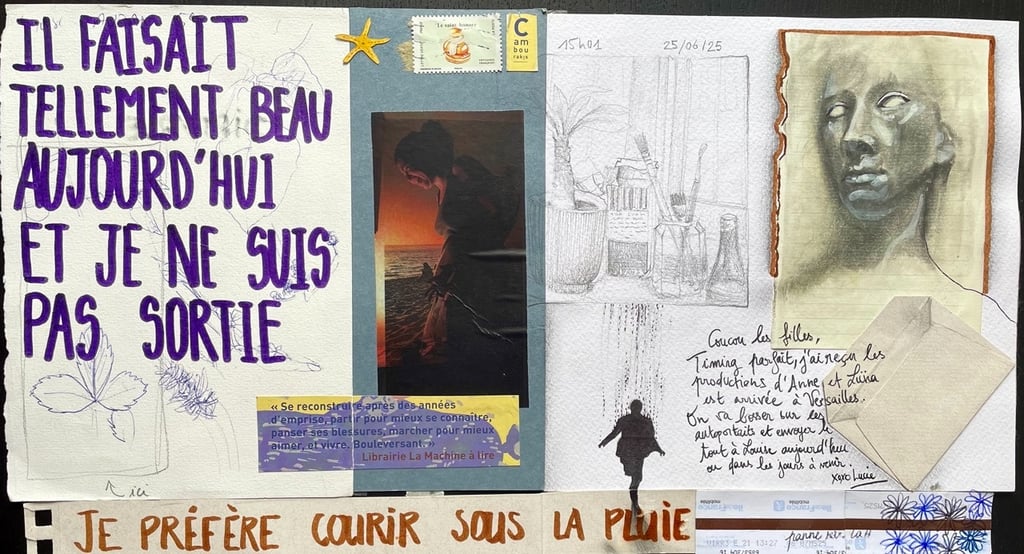 IL FAISAIT
TELLEMENT BEAU
AUJOURD'HUI
ET JE NE SUIS
PAS SORTIE
ici
C
am
bou
rakis
« Se reconstruire après des années
d'emprise, partir pour mieux se connaître,
panser ses blessures, marcher pour mieux
aimer, et vivre. Bouleversant. »
Librairie La Machine à lire
15h01 25/06/25
Coucou les filles,
Timing parfait, j'ai reçu les
productions d'Anne et Luna
est arrivée à Versailles.
On va bosser sur les
autoportaits et envoyer le
tout à Louise aujourd'hui
ou dans les jours à venir.
xoxo Lucie
JE PRÉFÈRE COURIR SOUS LA PLUIE
île de France
mobilités
île de France
mobilités